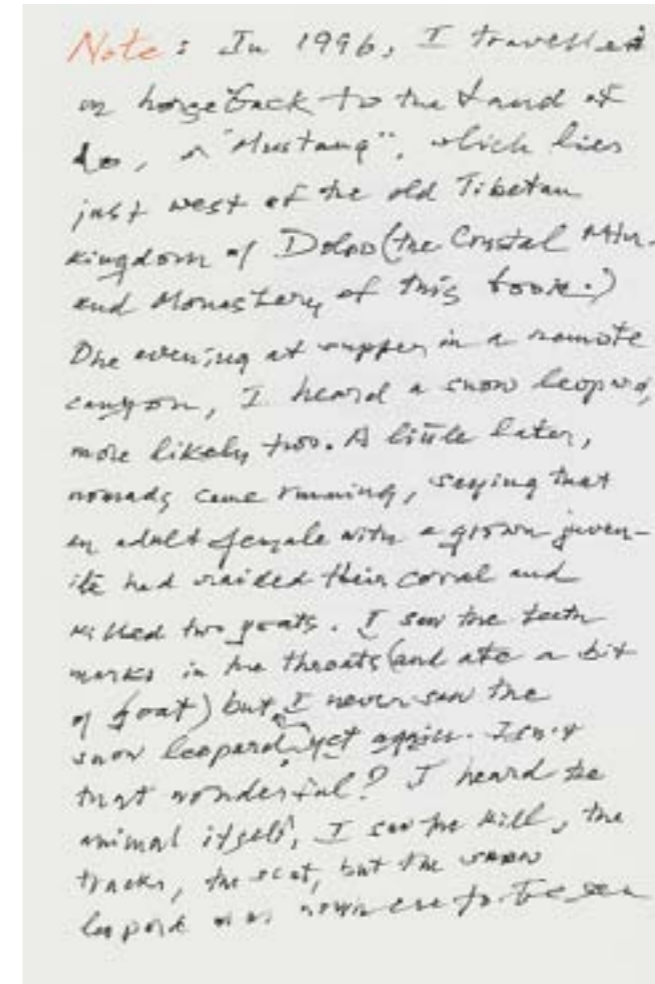 Note: In 1996, I travelled
on horseback to the Land of
Lo, or "Mustang", which lies
just west of the old Tibetan
kingdom of Dolpo (the Crystal Mtn.
and Monastery of this book.)
One evening at supper in a remote
canyon, I heard a snow leopard,
more likely two. A little later,
nomads came running, saying that
an adult female with a grown juven-
ile had raided their corral and
killed two goats. I saw the teeth
marks in the throats (and ate a bit
of goat) but I never saw the
snow leopard, yet again. Isn't
that wonderful? I heard the
animal itself, I saw the kill, the
tracks, the scat, but the snow
leopard was nowhere to be seen